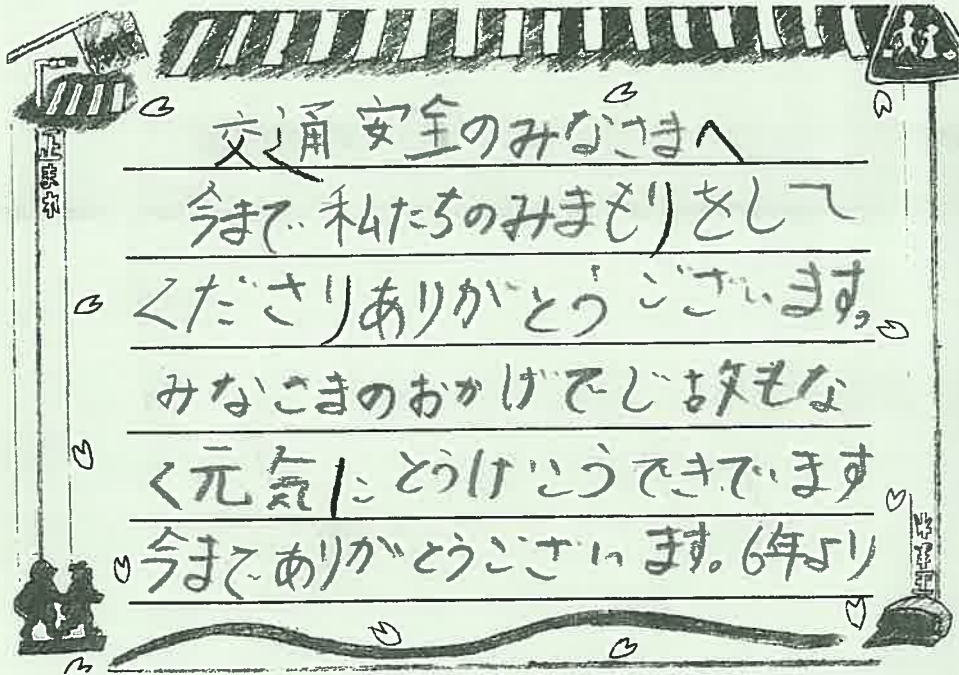 交通安全のみなさまへ
今まで私たちのみまもりをして
くださりありがとうございます。
みなさまのおかげでじ故もな
く元気にとうげこうできています
今までありがとうございます。6年より
止まれ